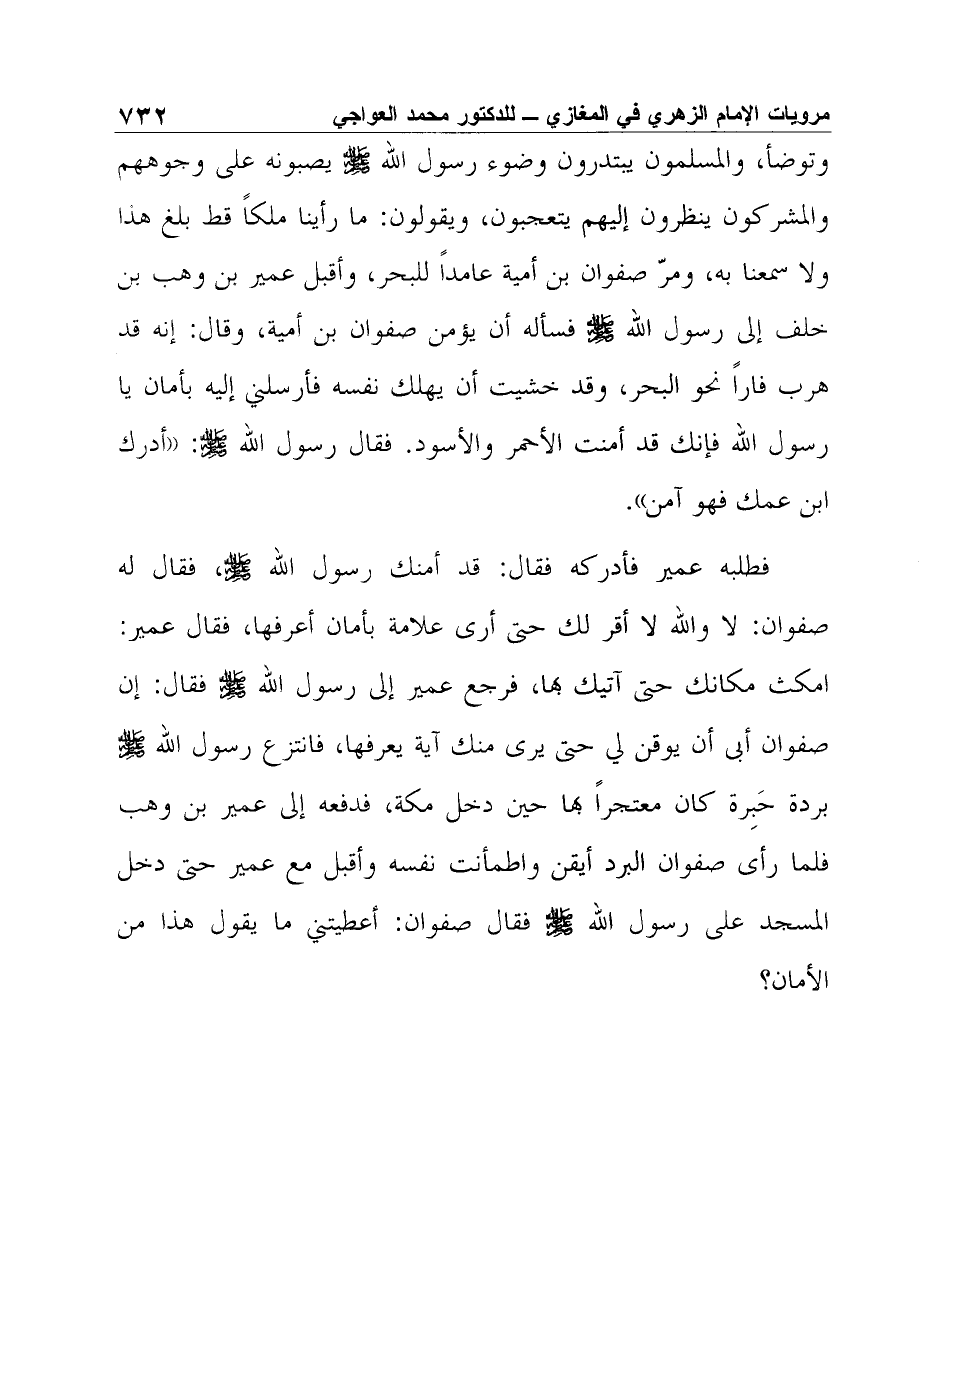 مرويات الإمام الزهري في المغازي ــ للدكتور محمد العواجي ٧٣٢
وتوضأ، والمسلمون يبتدرون وضوء رسول الله ﷺ يصبونه على وجوههم
والمشركون ينظرون إليهم يتعجبون، ويقولون: ما رأينا ملكاً قط بلغ هذا
ولا سمعنا به، ومرّ صفوان بن أمية عامداً للبحر، وأقبل عمير بن وهب بن
خلف إلى رسول الله ﷺ فسأله أن يؤمن صفوان بن أمية، وقال: إنه قد
هرب فاراً نحو البحر، وقد خشيت أن يهلك نفسه فأرسلني إليه بأمان يا
رسول الله فإنك قد أمنت الأحمر والأسود. فقال رسول الله ﷺ: ((أدرك
ابن عمك فهو آمن)).
فطلبه عمير فأدركه فقال: قد أمنك رسول الله ﷺ، فقال له
صفوان: لا والله لا أقر لك حتى أرى علامة بأمان أعرفها، فقال عمير:
امكث مكانك حتى آتيك بها، فرجع عمير إلى رسول الله ﷺ فقال: إن
صفوان أبى أن يوقن لي حتى يرى منك آية يعرفها، فانتزع رسول الله ﷺ
بردة حَبِرة كان معتجراً بها حين دخل مكة، فدفعه إلى عمير بن وهب
فلما رأى صفوان البرد أيقن واطمأنت نفسه وأقبل مع عمير حتى دخل
المسجد على رسول الله ﷺ فقال صفوان: أعطيتني ما يقول هذا من
الأمان؟